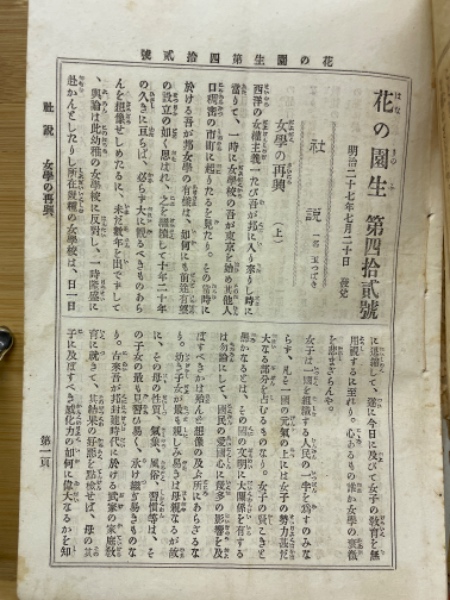 花の園生第四拾貳號
花の園生 第四拾貳號
明治二十七年七月二十日 發兌
社説 一名 玉つばき
女學の再興 (上)
西洋の女權主義一たび吾が邦に入り來りし時に
當りて、一時に女學校の吾が東京を始め其他人
口稠密の市町に起りたるを見たり。その當時に
於ける吾が邦女學の有樣は、如何にも前途有望
の設立の如く思はれ、之を繼續して十年二十年
の久きに亘らば、必らず大に觀るべきものあら
んを想像せしめたるに、未だ數年を出でずして
、輿論は此幼稚の女學校に反對し、一時隆盛に
赴かんとしたりし所在設置の女學校は、日一日
に退縮して、遂に今日に及びて女子の教育を無
用視するに至れり。心あるもの誰か女學の衰微
を悲まざらんや。
女子は一國を組織する人民の一半を爲すのみな
らず、凡そ一國の元氣の上には女子の勢力甚だ
大なる部分を占むるものなり。女子の賢こきと
愚かなるとは、その國の文明に大關係を有する
は勿論にして、國民の愛國心に幾多の影響を及
ぼすべきかは殆んど想像の及ぶ所にあらざるな
り。幼き子女が最も親しみ易きは母親なるが故
に、その母の性質、氣象、風俗、習慣等は、そ
の子女の最も見習ひ易く、承け繼ぎ易きものな
り。古來吾が邦封建時代に於ける武家の家庭教
育に就きて、其結果の好惡を點檢せば、母の其
子に及ぼすべき感化力の如何に偉大なるかを知
社説 女學の再興
第一頁